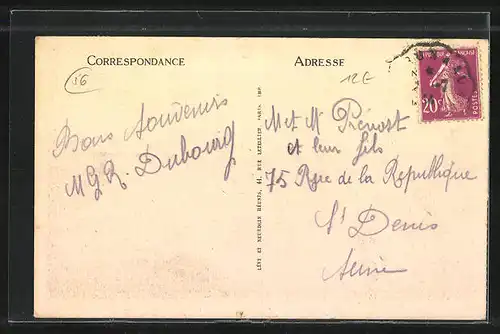 CORRESPONDANCE
ADRESSE
56
12E
Bons souvenirs
MGR. Dubourg
M et Mme Prévost
et leur fils
75 Rue de la République
St Denis
Seine
LÉVY ET NEURDEIN RÉUNIS, 44, RUE LETELLIER, PARIS
20c
POSTES